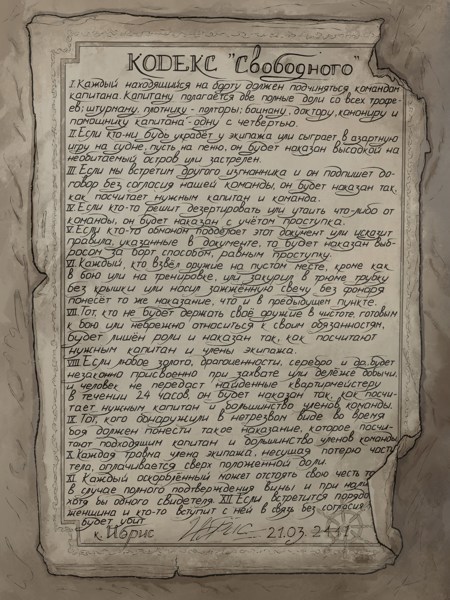 КОДЕКС "Свободного"
I. Каждый находящийся на борту должен подчиняться командам
капитана. Капитану полагается две полные доли со всех трофе-
ев; штурману, плотнику - полторы; боцману, доктору, канониру и
помощнику капитана - одну с четвертью.
II. Если кто-ни будь украдёт у экипажа или сыграет в азартную
игру на судне, пусть на пеню, он будет наказан высадкой на
необитаемый остров или застрелен.
III. Если мы встретим другого изгнанника и он подпишет до-
говор без согласия нашей команды, он будет наказан так,
как посчитает нужным капитан и команда.
IV. Если кто-то решит дезертировать или утаить что-либо от
команды, он будет наказан с учётом проступка.
V. Если кто-то обманом подделает этот документ или исказит
правила, указанные в документе, то будет наказан выб-
росом за борт способом, равным проступку.
VI. Каждый, кто взвёл оружие на пустом месте, кроме как
в бою или на тренировке, или закурил в трюме трубку
без крышки или носил зажжённую свечу без фонаря
понесёт то же наказание, что и в предыдущем пункте.
VII. Тот, кто не будет держать своё оружие в чистоте, готовым
к бою или небрежно относиться к своим обязанностям,
будет лишён роли и наказан так, как посчитают
нужным капитан и члены экипажа.
VIII. Если любое золото, драгоценности, серебро и др. будет
незаконно присвоенно при захвате или дележе добычи
и человек не передаст найденные квартирмейстеру
в течении 24 часов, он будет наказан так, как посчи-
тает нужным капитан и большинство членов команды.
IX. Тот, кого обнаружили в нетрезвом виде во время
боя должен понести такое наказание, которое посчи-
тают подходящим капитан и большинство членов команды
X. Каждая травма члена экипажа, несущая потерю части
тела, оплачивается сверх положенной доли.
XI. Каждый оскарблённый может отстоять свою честь
в случае полного подтверждения вины и при нали
хотя бы одного свидетеля. XII. Если встретится поряд
женщина и кто-то вступит с ней в связь без согласия
будет убит.
к. Ибрис Ибрис 21.03.